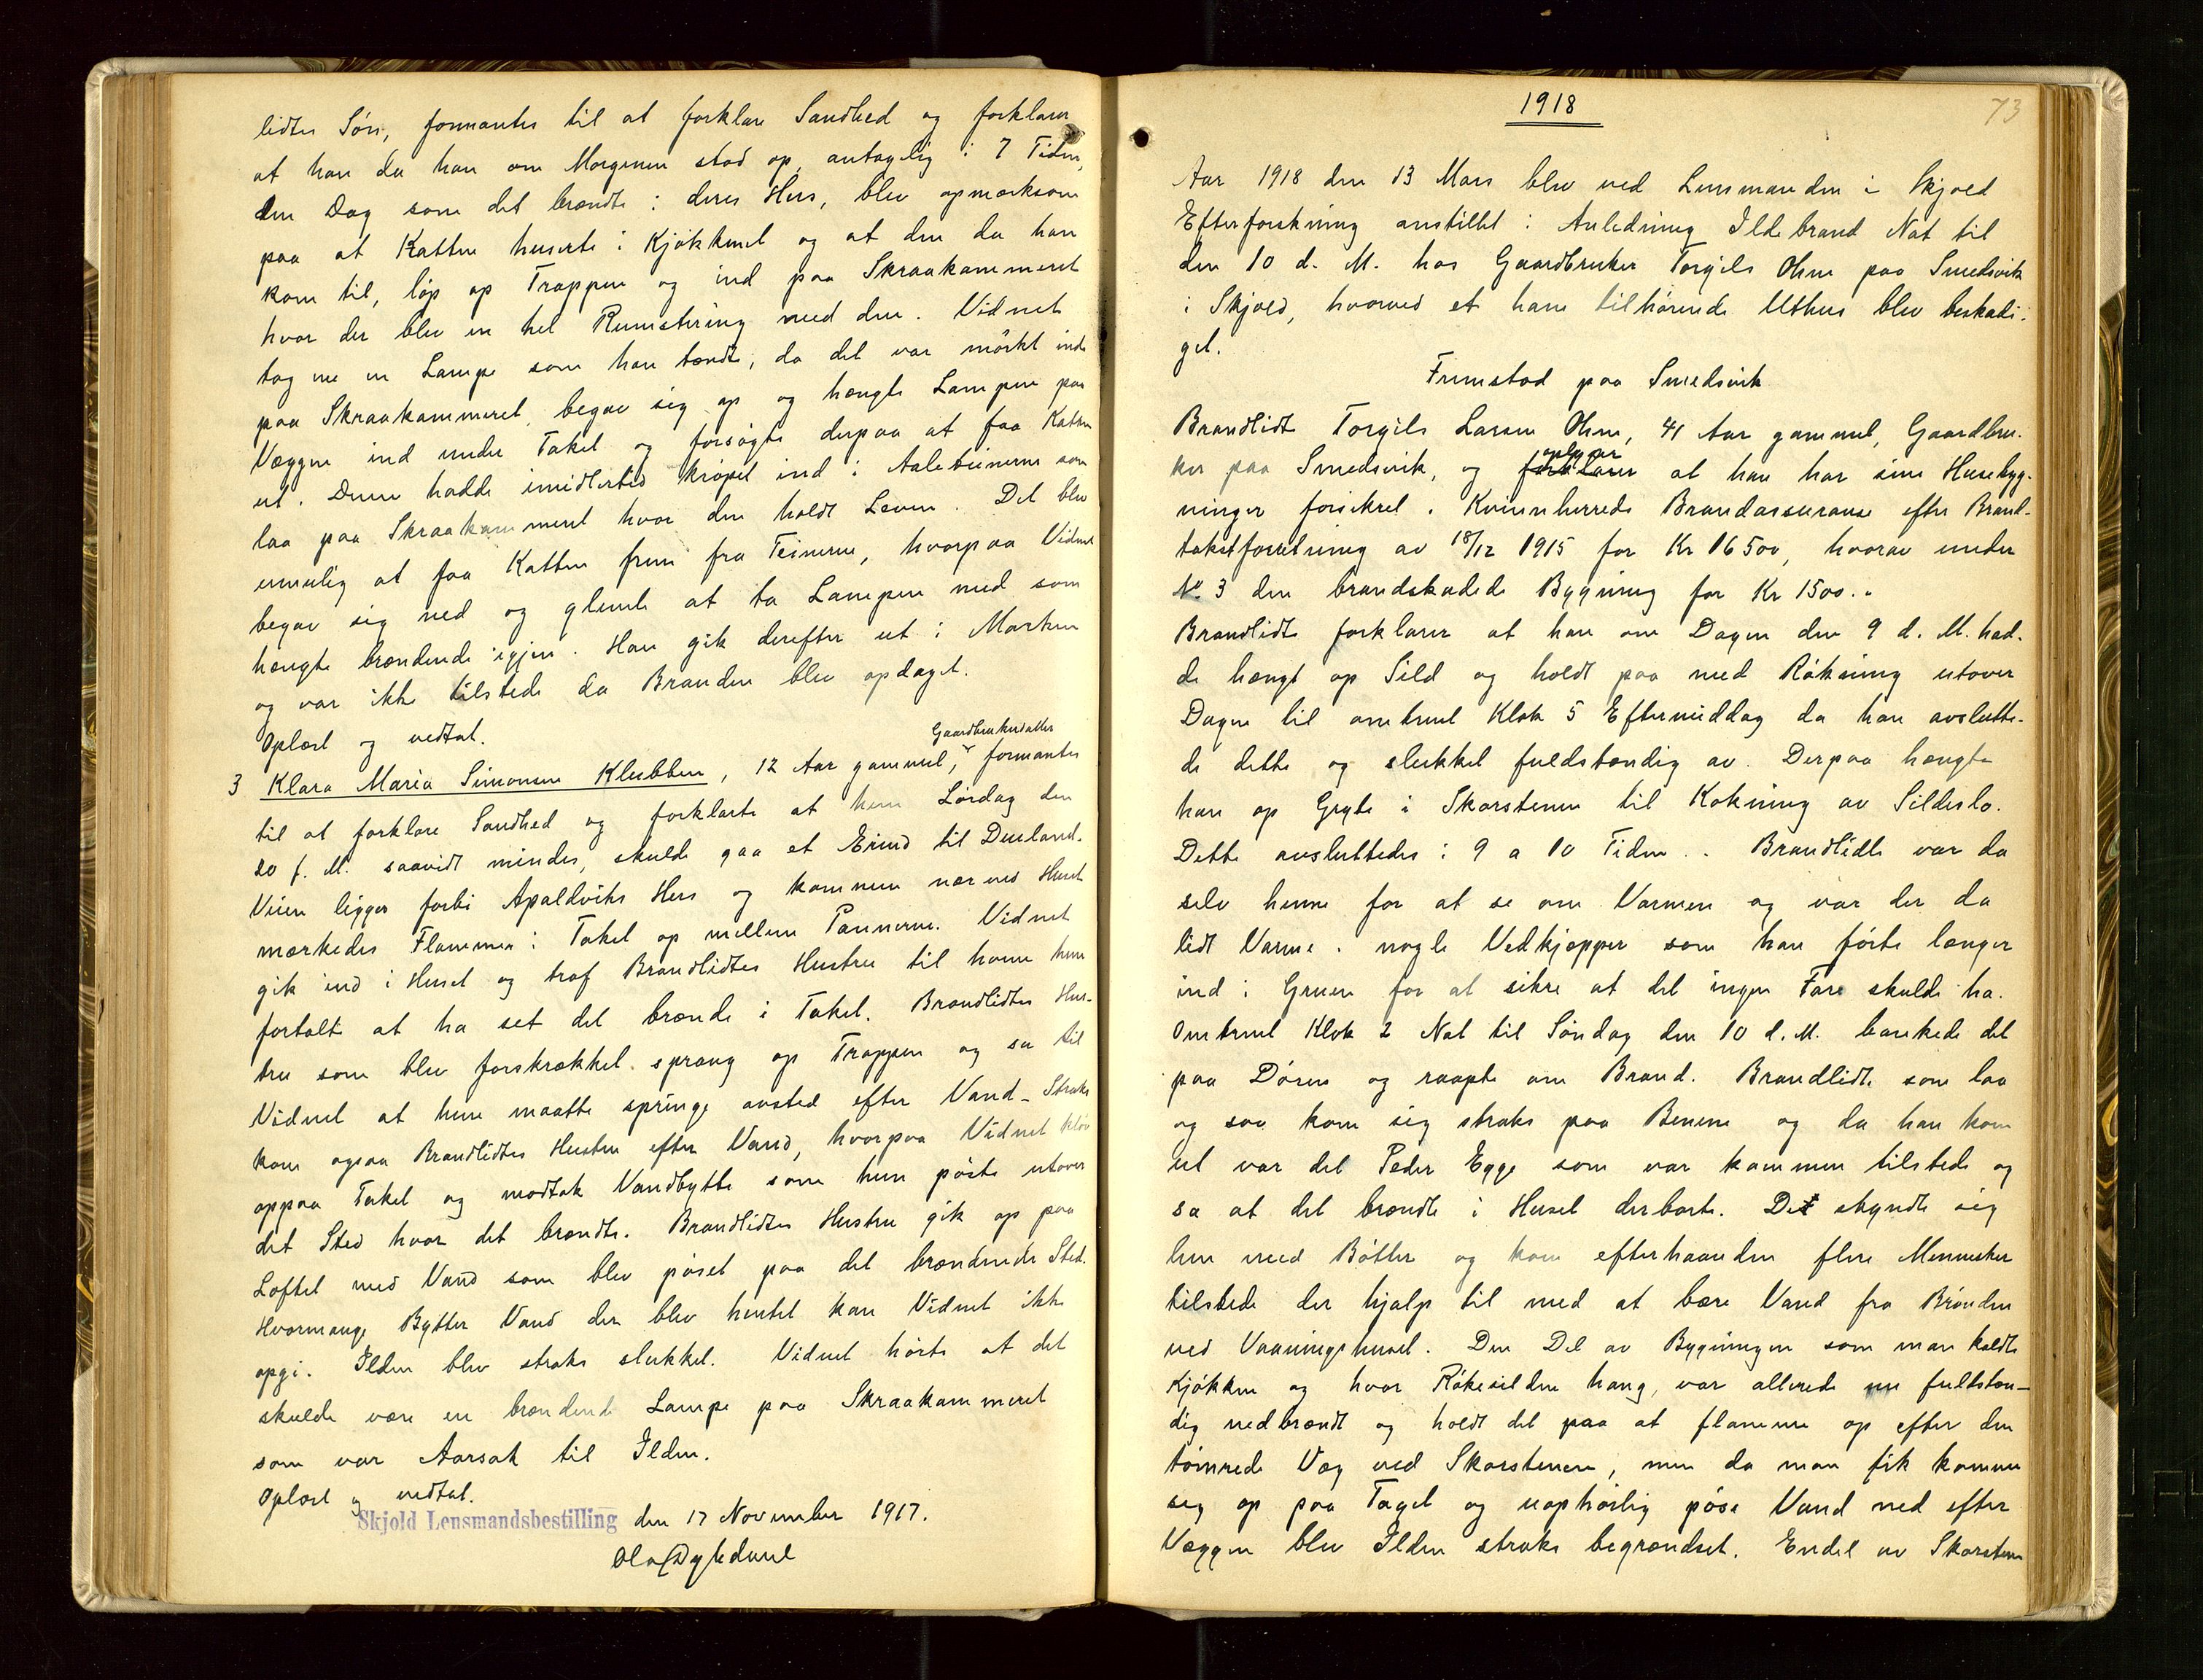 lidtes Søn, formantes til at forklare Sandhed og forklarer
at han da han om Morgenen stod op, antagelig i 7 Tiden,
den Dag som det brændte i deres Hus, blev opmerksom
paa at Katten huserte i Kjøkkenet og at den da han
kom til, løp op Trappen og ind paa Skraakammeret
hvor der blev en hel Rumstering med den. Vidnet
tog nu en Lampe som han tændte, da det var mørkt inde
paa Skraakammeret, begav sig op og hængte Lampen paa
Væggen ind under Taket og forsøgte derpaa at faa Katten
ut. Denne hadde imidlertid krøpet ind i Aaleteinerne som
laa paa Skraakammeret hvor den holdt Leven. Det blev
umulig at faa Katten frem fra Teinerne, hvorpaa Vidnet
begav sig ned og glemte at ta Lampen med som
hængte brændende igjen. Han gik derefter ut i Marken
og var ikke tilstede da Branden blev opdaget.
Oplæst og vedtat.
Gaardbrukerdatter
3 Klara Maria Simonsen Klubben, 12 Aar gammel, formantes
til at forklare Sandhed og forklarte at hun Lørdag den
20 f. M. saavidt mindes, skulde gaa et Erind til Dueland.
Veien ligger forbi Apaldviks Hus og kommen nær ved Huset
mærkedes Flammer i Taket op mellem Pannerne. Vidnet
gik ind i Huset og traf Brandlidtes Hustru til hvem hun
fortalte at ha set det brænde i Taket. Brandlidtes Hus-
tru som blev forskrækket sprang op Trappen og sa til
Vidnet at hun maatte springe avsted efter Vand - Straks
kom ogsaa Brandlidtes Hustru efter Vand, hvorpaa Vidnet kløv
oppaa Taket og modtok Vandbytte som hun pøste utover
det Sted hvor det brændte. Brandlidtes Hustru gik op paa
Loftet med Vand som blev pøset paa det brændende Sted.
Hvormange Bytter Vand der blev hentet kan Vidnet ikke
opgi. Ilden blev straks slukket. Vidnet hørte at det
skulde være en brændende Lampe paa Skraakammeret
som var Aarsak til Ilden.
Oplæst og vedtat.
Skjold Lensmandsbestilling den 17 November 1917.
1918
73
Aar 1918 den 13 Mars blev ved Lensmanden i Skjold
Efterforskning anstillet i Anledning Ildebrand Nat til
den 10 d. M. hos Gaardbruker Torgils Ohm paa Smedsvik
i Skjold, hvorved et ham tilhørende Uthus blev beskadi-
get.
Fremstod paa Smedsvik
Brandlidt Torgils Larsen Ohm, 41 Aar gammel, Gaardbru-
oplyser
ker paa Smedsvik, og forklarer at han har sine Husebyg-
ninger forsikret i Kvinnherreds Brandassuranse efter Brand-
takstforretning av 18/12 1915 for Kr 16500, hvorav under
No 3 den brandskadede Bygning for Kr 1500..
Brandlidte forklarer at han om Dagen den 9 d. M. had-
de hængt op Sild og holdt paa med Røkning utover
Dagen til omtrent Klok 5 Eftermiddag da han avslutte-
de dette og slukket fuldstændig av. Derpaa hængte
han op Gryte i Skorstenen til Kokning av Sildeslo.
Dette avsluttedes i 9 a 10 Tiden.. Brandlidte var da
selv henne for at se om Varmen og var der da
lidt Varme i nogle Vedkjepper som han førte længer
ind i Gruen for at sikre at det ingen Fare skulde ha.
Omtrent Klok 2 Nat til Søndag den 10 d. M. bankede det
paa Døren og raapte om Brand. Brandlidte som laa
og sov kom sig straks paa Benene og da han kom
ut var det Peder Egge som var kommen tilstede og
sa at det brændte i Huset derborte. Det skyndte sig
hen med Bøtter og kom efterhaanden flere Mennesker
tilstede der hjalp til med at bære Vand fra Brønden
ved Vaaningshuset. Den Del av Bygningen som man kaldte
Kjøkken og hvor Røkesilden hang, var allerede nu fuldstæn-
dig nedbrændt og holdt det paa at flamme op efter den
tømrede Væg ved Skorstenen, men da man fik komme
seg op paa Taget og uophørlig pøse Vand ned efter
Væggen blev Ilden straks begrændset. Endel av Skorstenen